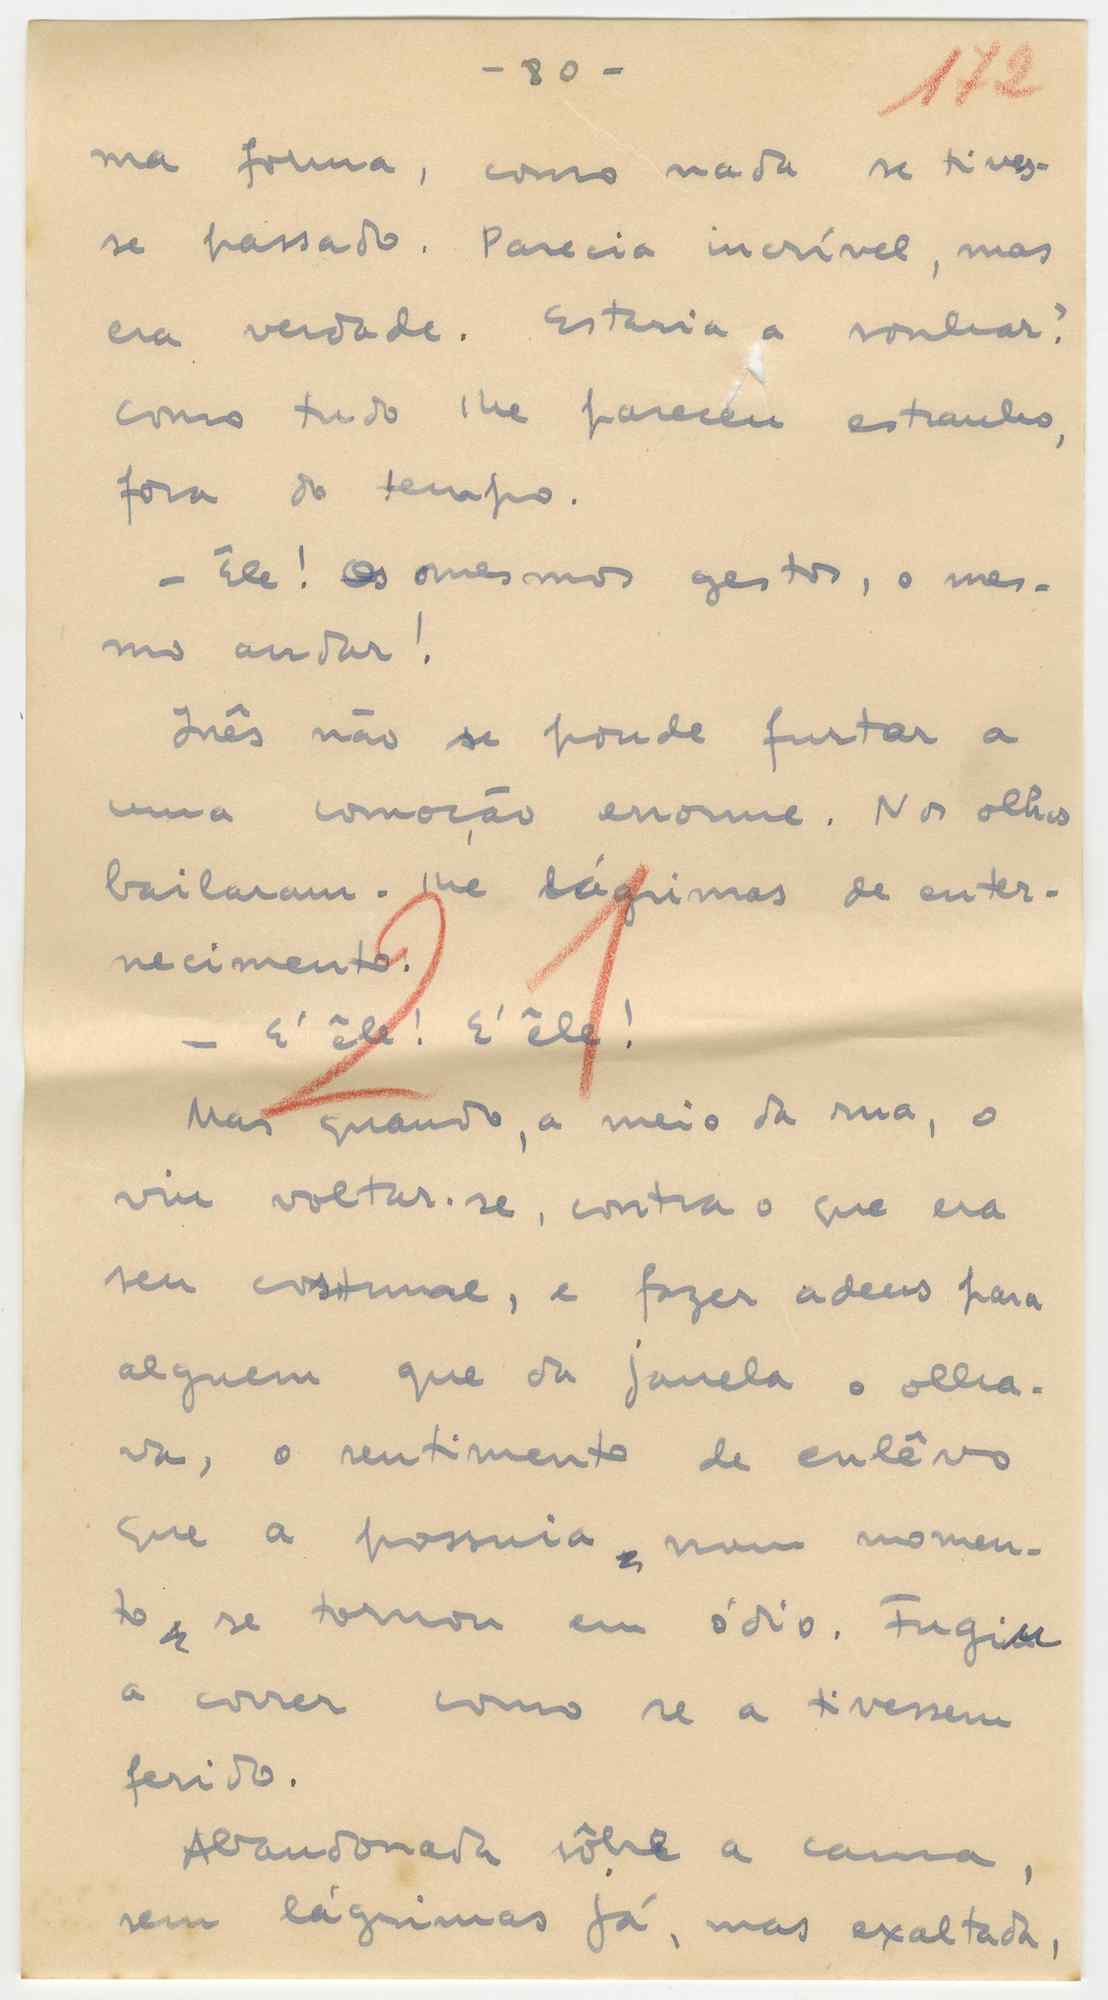 - 80 -
172
ma forma, como nada se tives-
se passado. Parecia incrível, mas
era verdade. Estaria a sonhar?
Como tudo lhe pareceu estranho,
fora do tempo.
- Êle! Os mesmos gestos, o mes-
mo andar!
Inês não se poude furtar a
uma comoção enorme. Nos olhos
bailaram-lhe lágrimas de enter-
necimento.
21
- E' êle! E' êle!
Mas quando, a meio da rua, o
viu voltar-se, contra o que era
seu costume, e fazer adeus para
alguem que da janela o olha-
va, o sentimento de enlêvo
que a possuia, num momen-
to, se tornou em ódio. Fugiu
a correr como se a tivessem
ferido.
Abandonada sôbre a cama,
sem lágrimas já, mas exaltada,